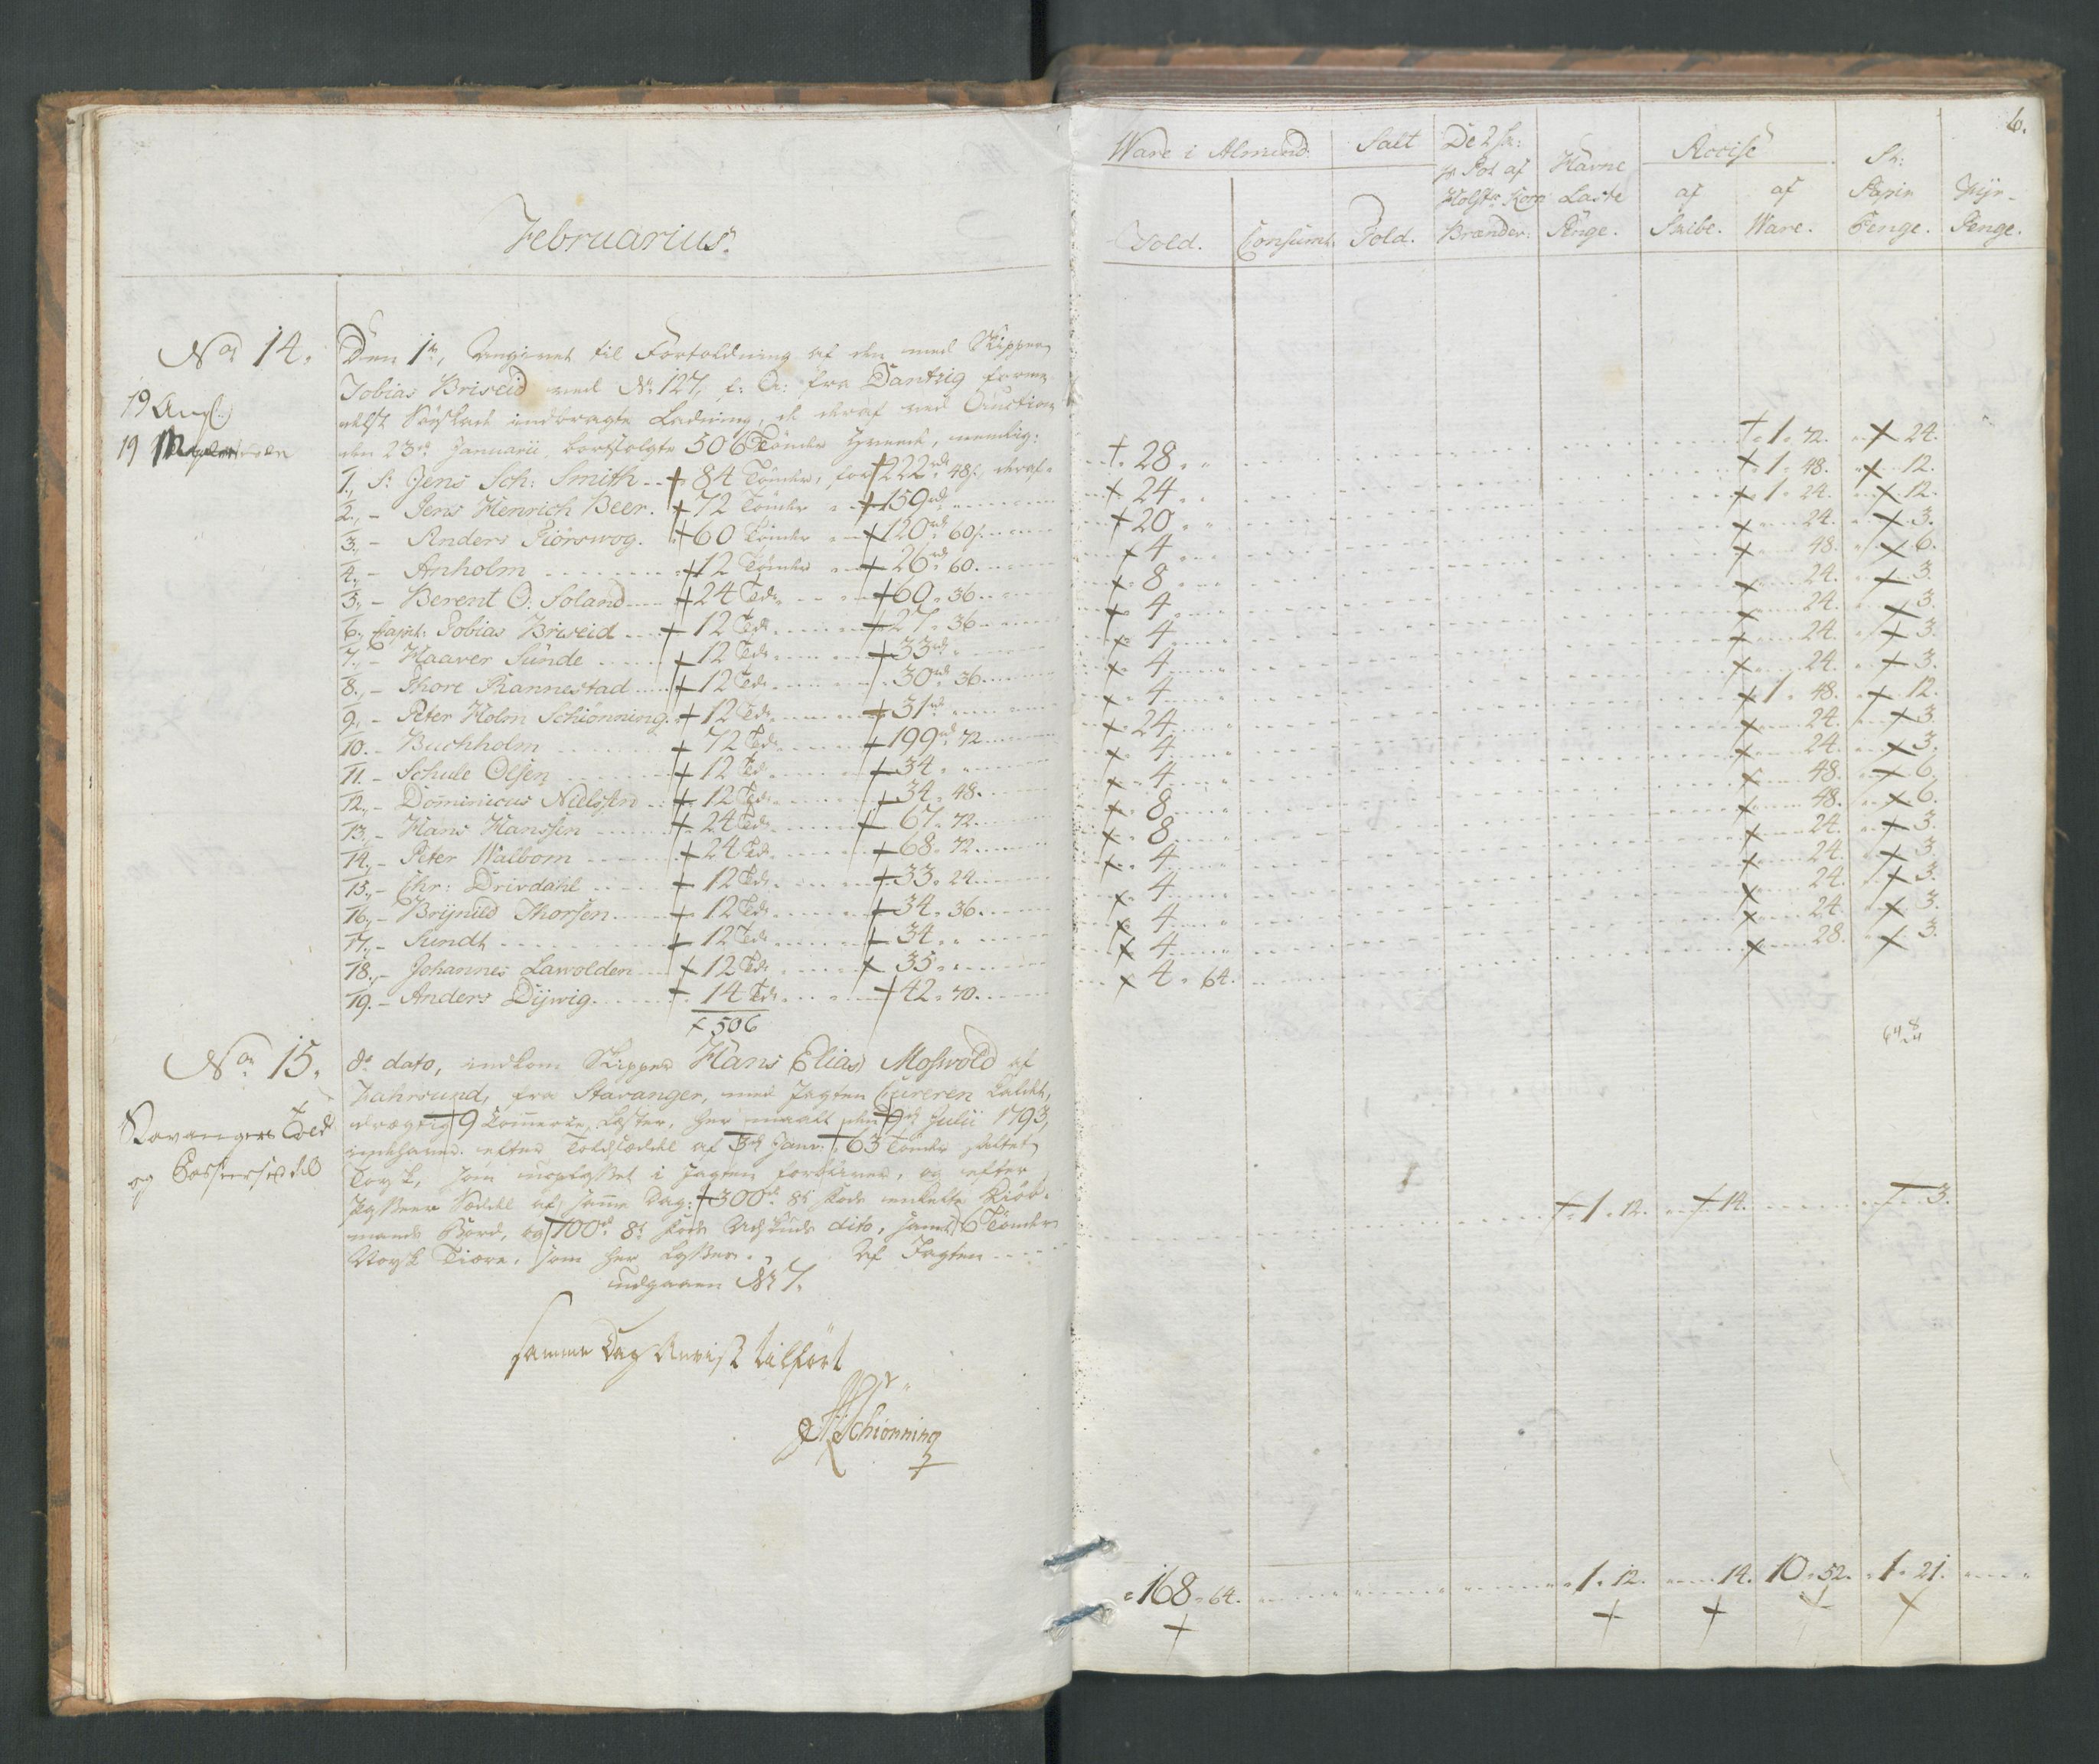 Februarius.
No 14.
19 Ang:
19
Den 1te, Angivet til Fortoldning af den med Skipper
Tobias Briseid ved No 127, f: A: fra Dantzig forme-
delst Søeskade indbragte Ladning, de deraf ved Auction
den 23de Januarii bortsolgte 506 Tønder Hvede, nemlig:
1., Sr Jens Sch: Smith 84 Tønder, for 222rd 48s, deraf
2., - Jens Henrich Beer. 72 Tønder 159rd
3., - Anders Fiörswog. 60 Tønder 120rd 60s
4., - Anholm 12 Tønder 26rd 60.
5., - Berent O: Soland 24 Tdr 60. 36.
6., Capit: Tobias Briseid 12 Tdr 27. 36.
7., - Haaver Sunde 12 Tdr 33rd
8., - Thore Rannestad 12 Tdr 30rd 36.
9., - Peter Holm Schiönning. 12 Tdr 31rd
10. - Buchholm 72 Tdr 199rd 72
11. - Schule Olsen 12 Tdr 34.
12., - Dominicus Nielssen 12 Tdr 34. 48.
13., - Hans Hanssen 24 Tdr 67. 72.
14., - Peter Walbom 24 Tdr 68. 72.
15., - Chr: Drivdahl 12 Tdr 33. 24.
16., - Brynild Thorsen 12 Tdr 34. 36.
17., - Sundt 12 Tdr 34.
18., - Johannes Lawolden 12 Tdr 35.
19. - Anders Dijwig. 14 Tdr 42. 70.
506
No 15.
Stavangers Told
og Passeersedel
do dato, indkom Skipper Hans Elias Moswold af
Fahrsund, fra Stavanger, med Jagten Cureren kaldet,
drægtig 9 Commerce Læster, her maalt den 9de Julii 1793,
indehaver efter Toldsæddel af 3de Janr: 63 Tønder saltet
Torsk, som uoplosset i Jagten forbliver, og efter
Passeer Sæddel af samme Dag: 300 8t Fods enkelte Kiöb-
mands Bord, og 100 8t Fods dito, samt 6 Tønder
Norsk Tiære, som her losses. Af Jagten
udgaaen No 7.
samme Dag Anvist tilført
PHSchiønning
6.
Ware i Almind: Salt De 2 sk: pr Pot af Holstn Korn Brænder: Havne Laste Penge. Accise Sk: Papir Penge. Fyr-Penge.
Told. Consumt. Told. af Skibe. af Ware.
28. 1. 72. 24.
24. 1. 48. 12.
20. 1. 24. 12.
4 24. 3.
8 48. 6.
4 24. 3.
4 24. 3.
4 24. 3.
4 24. 3.
24 1. 48. 12.
4 24. 3.
4 24. 3.
8 48. 6.
8 48. 6.
4 24. 3.
4 24. 3.
4 24. 3.
4 24. 3.
4. 64. 28. 3.
1. 12. 14. 3.
168. 64. 1. 12. 14. 10. 52. 1. 21.